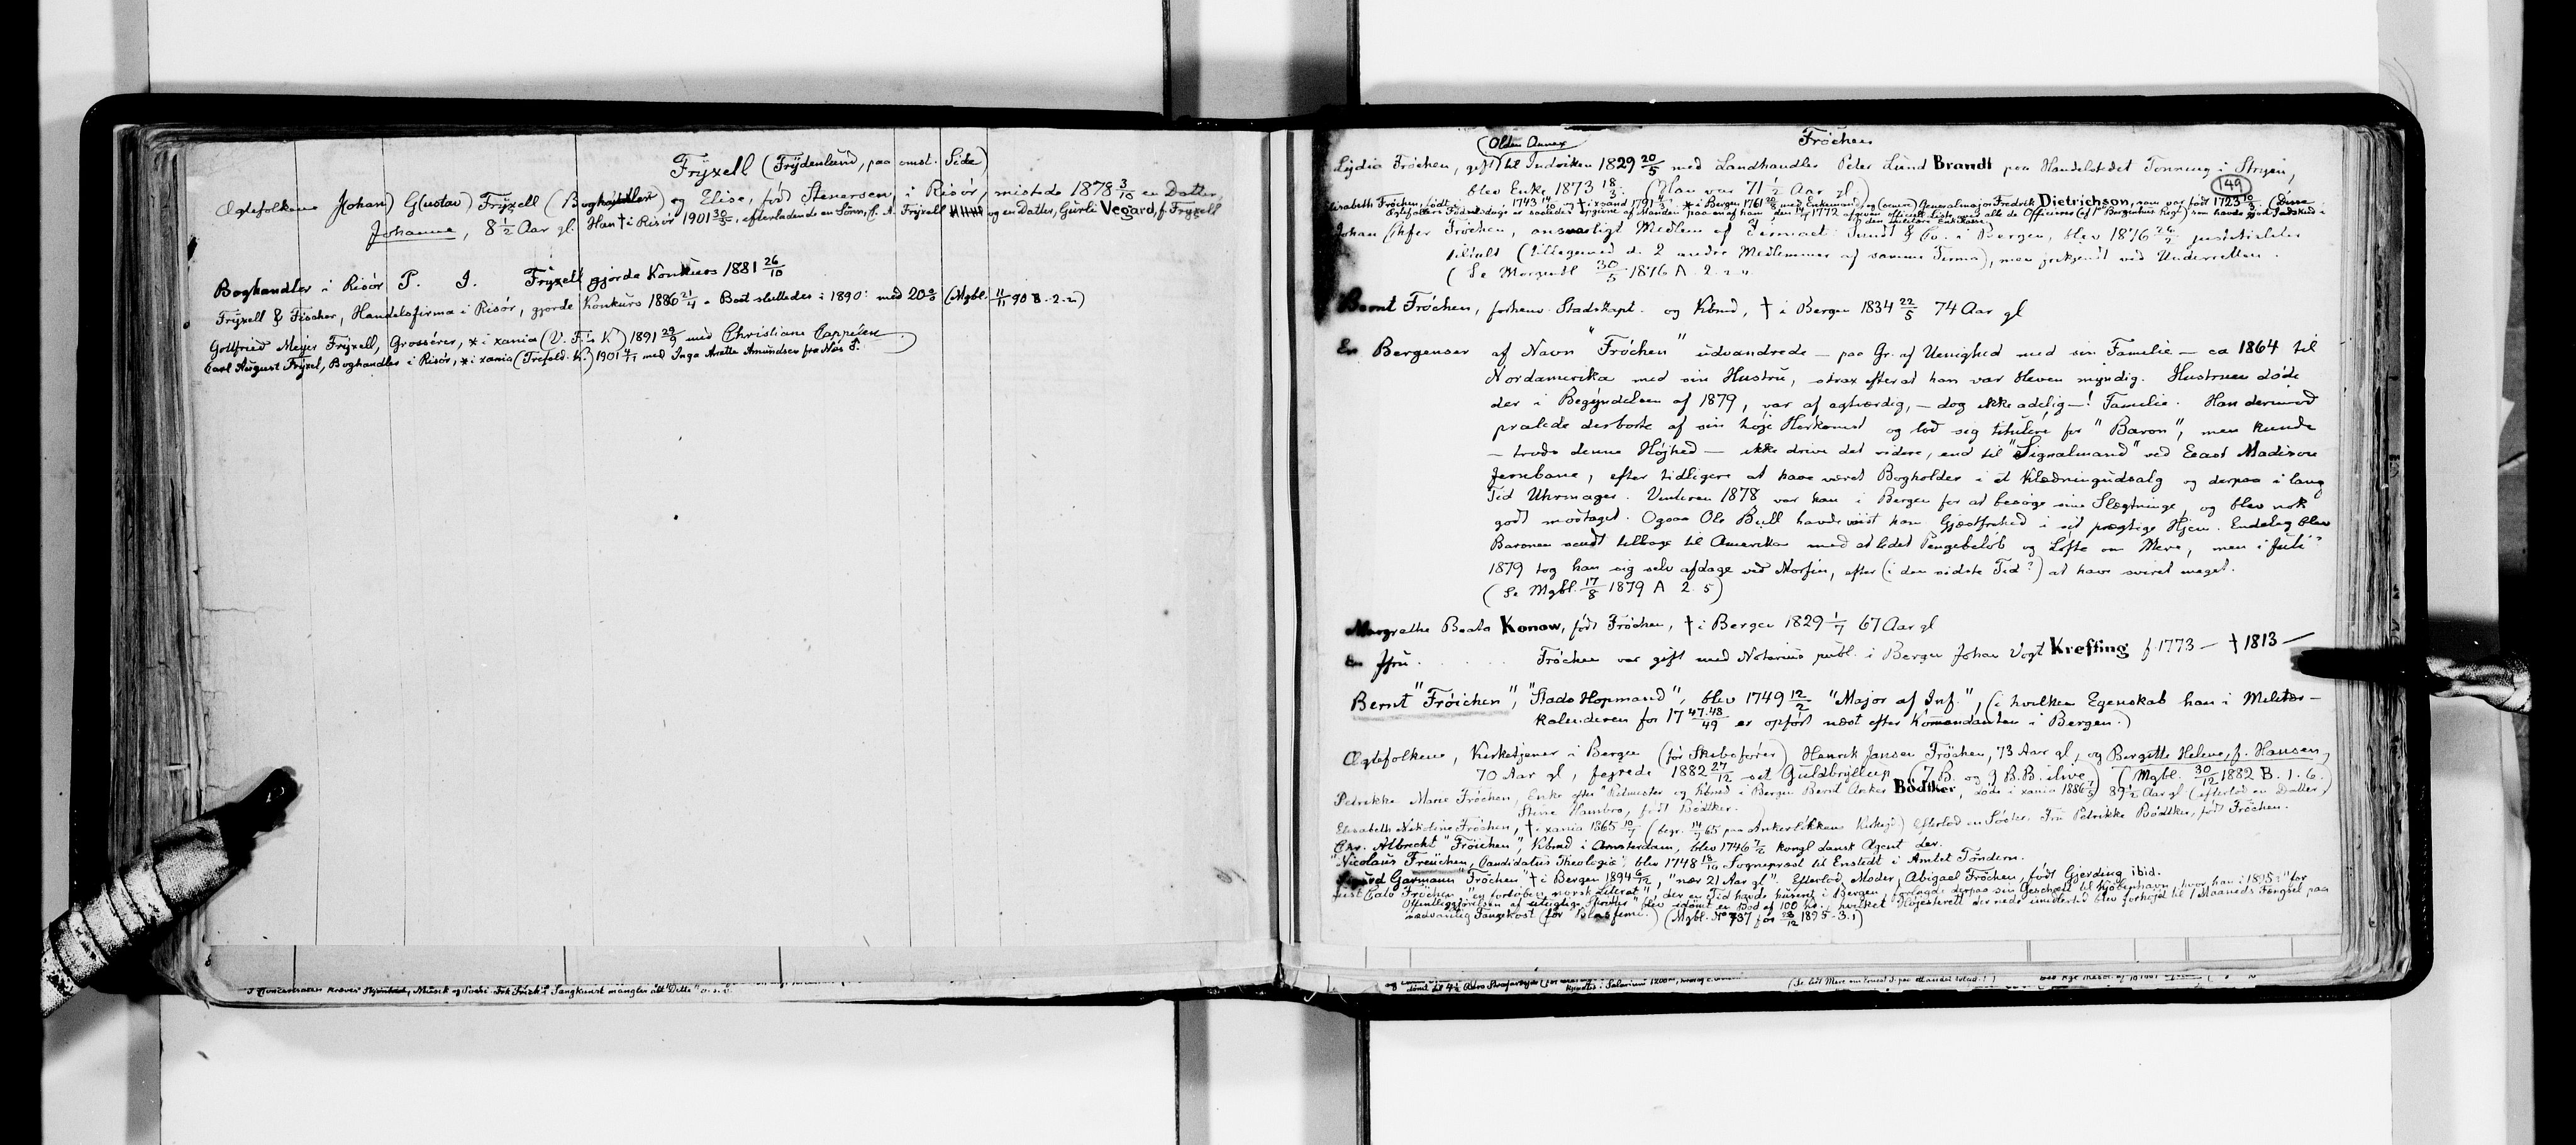 Fryxell (Frydenlund, paa omst. Side)
Ægtefolkene J(ohan) G(ustav) Fryxell (Boghandler) og Elise, født Stenersen, i Risør, mistede 1878 3/10 en Datter,
Johanne, 8 1/2 Aar gl. Han † i Risør 1901 30/5, efterladende en Sönn, C. A. Fryxell og en Datter, Gurli Vegard, f. Fryxell
Boghandler i Risør P. J. Fryxell gjorde Konkurs 1881 26/10
Fryxell & Fischer, Handelsfirma i Risør, gjorde Konkurs 1886 21/4. Boet sluttedes i 1890: med 20 % (Mgbl. 11/11 90 B. 2. 2)
Gottfried Meyer Fryxell, Grosserer, * i xania (V. F.s K) 1891 29/9 med Christiane Cappelen
Carl August Fryxel, Boghandler i Risör, * i xania (Trefold. K.) 1901 4/11 med Inga Anette Amundsen fra Næs P.
Fröchen
(Olden Annex)
Lydia Fröchen, gift til Indviken 1829 20/5 med Landhandler Peder Lund Brandt paa Handelstedet Tonning i Stryn,
blev Enke 1873 18/3. (Han var 71 1/2 Aar gl.)
(149)
Elisabeth Fröchen, født 1743 14/10 og † i xsand 1791 4/3, * i Bergen 1761 20/8 med Enkemand og (senere) Generalmajor Fredrik Dietrichson, som var født 1723 10/3. (Disse
Ægtefællers Fødselsdage er saaledes opgivne af Manden paa en af ham den 14/9 1772 afgiven officiel Liste over alle de Officierer (af 1ste Bergenhus Regt) som havde gjort Indskud i
den militære Enkekasse.
Johan Chfer Fröchen, ansvarligt Medlem af Firmaet Sundt & Co. i Bergen, blev 1876 26/2 justitieleder
tiltalt (tilligemed d. 2 andre Medlemmer af samme Firma), men frikjendt ved Underretten.
(Se Morgenbl. 30/5 1876 A. 2. 2. 4.
Bernt Fröchen, forhenv. Stadskapt. og Kbmd, † i Bergen 1834 22/5 74 Aar gl
En Bergenser af Navn "Fröchen" udvandrede — paa Gr. af Uenighed med sin Familie — ca 1864 til
Nordamerika med sin Hustru, strax efterat han var bleven myndig. Hustruen døde
der i Begyndelsen af 1879, var af agtværdig, — dog ikke adelig —! Familie. Han derimod
pralede derborte af sin høje Herkomst og lod sig titulere for "Baron", men kunde
— trods denne Højhed — ikke drive det videre, end til "Signalmand" ved East Madison
Jernbane, efter tidligere at have været Bogholder i et Klædningudsalg og derpaa i lang
Tid Uhrmager. Vinteren 1878 var han i Bergen for at besøge sine Slægtninge, og blev nok
godt modtaget. Ogsaa Ole Bull havde viist ham Gjæstfrihed i sit prægtige Hjem. Endelig blev
Baronen sendt tilbage til Amerika med et lidet Pengebeløb og Løfte om Mere, men i Juli?
1879 tog han sig selv afdage ved Morfin, efter (i den sidste Tid?) at have sviret meget.
(Se Mgbl. 17/8 1879 A 2. 5)
Margrethe Beata Konow, født Fröchen, † i Bergen 1829 1/7 67 Aar gl
En Jfru . . . . . Fröchen var gift med Notarius publ. i Bergen Johan Vogt Krefting f. 1773 — † 1813 —
Bernt "Fröichen", "Stads Hopmand", blev 1749 12/2 "Major af Inf.", (i hvilken Egenskab han i Militær-
kalenderen for 17 47.48/49 er opført næst efter Kommandanten i Bergen.)
Ægtefolkene, Kirketjener i Bergen (før Skibsfører) Henrik Jansen Fröchen, 73 Aar gl, og Bergitte Helene, f. Hansen,
70 Aar gl, fejrede 1882 27/12 sit Guldbryllup (7 B. og 9 B.B. ilive) (Mgbl. 30/12 1882 B. 1. 6.)
Petrikke Marie Fröchen, Enke efter Ritmester og Kbmd i Bergen Bernt Anker Bödtker, døde i xania 1886 7/5 89 1/2 Aar gl (efterlod en Datter,
Stine Hambro, født Bödtker.
Elisabeth Nikoline Fröchen, † i xania 1865 10/7 (begr. 14/7 65 paa Ankerlökkens Kirkeg.) Efterlod en Söster, Fru Petrikke Bödtker, født Fröchen.
Chr. Albrecht "Fröichen", Kbmd i Amsterdam, blev 1746 7/2 kongl dansk Agent der.
"Nicolaus Freuchen, Candidatus Theologiæ", blev 1748 18/10 Sognepræst til Enstedt i Amtet Töndern.
Sigurd Garmann "Fröchen" † i Bergen 1894 6/12, "nær 21 Aar gl". Efterlod, Moder, Abigael Fröchen, født Gjerding ibid.
Just Cato Fröchen "en forløben norsk Literat", der en Tid havde huseret i Bergen, forlagde derpaa sin Geschæft til Kjøbenhavn, hvor han i 1895 "for
Offentliggjörelsen af utugtige Skrifter" blev idømt en Bod af 100 Kr., hvilket Höjesterett dernede imidlertid blev forhöjet til 1 Maaneds Fængsel paa
sædvanlig Fangekost (for Blasfemi.) (Mgbl. No 737 for 23/12 1895. 3. 1)